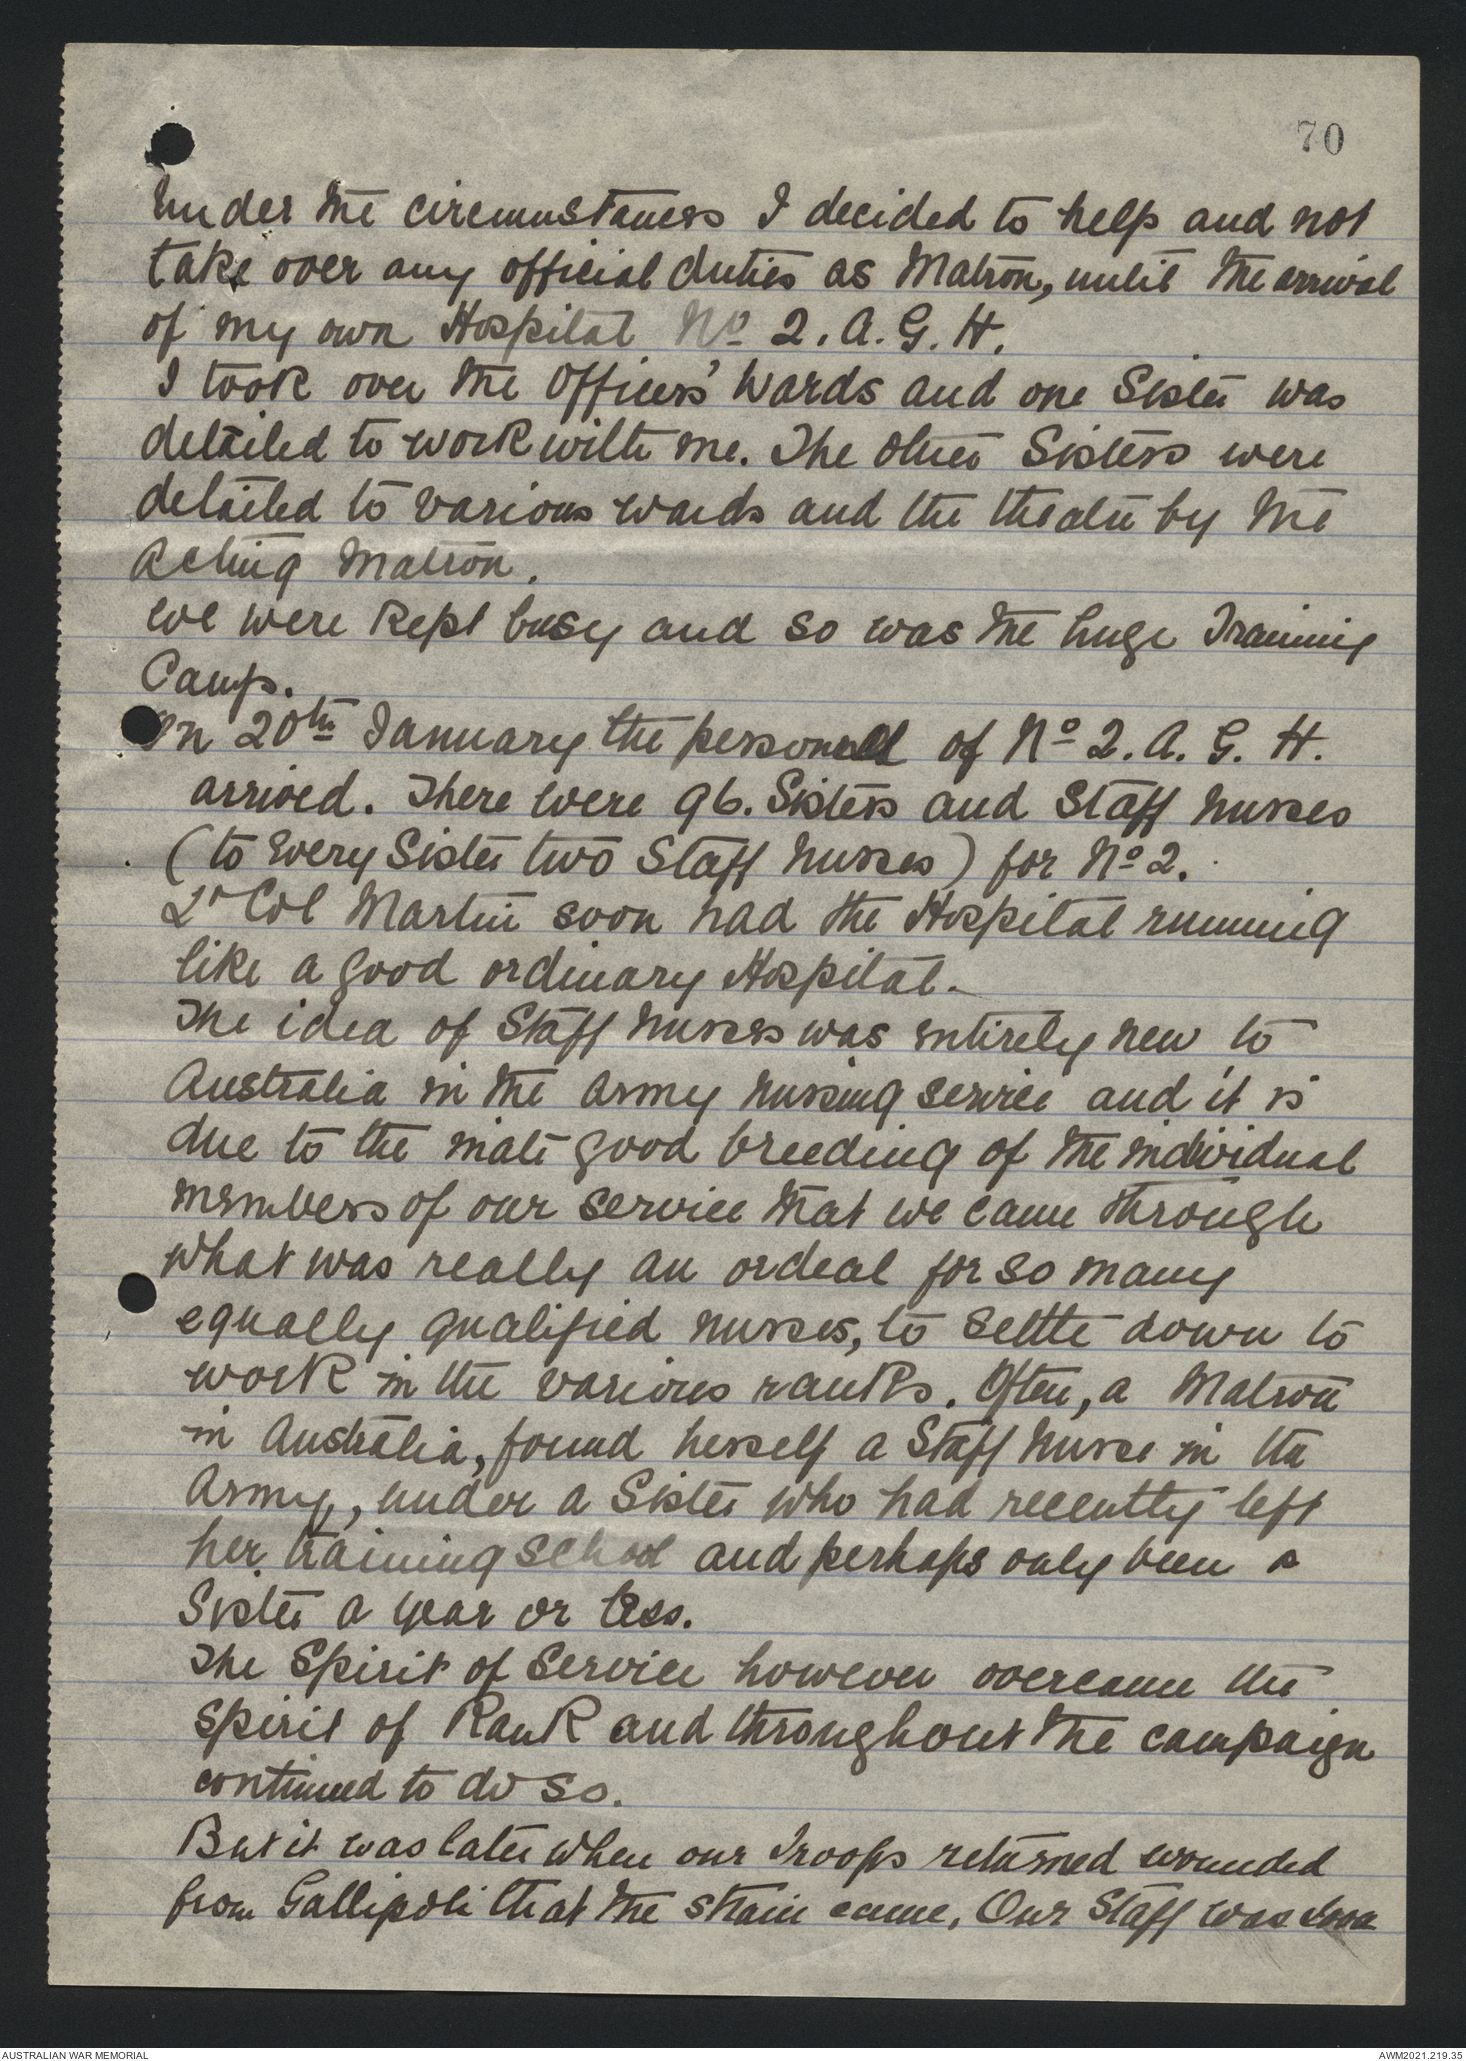 70
Under the circumstances I decided to help and not
take over any official duties as Matron, until the arrival
of my own Hospital No 2. A. G. H.
I took over the Officers' Wards and one Sister was
detailed to work with me. The other Sisters were
detailed to various wards and the theatre by the
Acting Matron.
We were kept busy and so was the huge Training
Camp.
On 20th January the personell of No 2. A. G. H.
arrived. There were 96. Sisters and Staff Nurses
(to every Sister two Staff Nurses) for No 2.
Lt Col Martin soon had the Hospital running
like a good ordinary Hospital.
The idea of Staff Nurses was entirely new to
Australia in the Army Nursing Service and it is
due to the inate good breeding of the individual
members of our service that we came through
what was really an ordeal for so many
equally qualified nurses, to settle down to
work in the various ranks. Often, a Matron
in Australia, found herself a Staff Nurse in the
Army, under a Sister who had recently left
her training school and perhaps only been a
Sister a year or less.
The Spirit of Service however overcame the
Spirit of Rank and throughout the campaign
continued to do so.
But it was later when our Troops returned wounded
from Gallipoli that the strain came, Our Staff was
AUSTRALIAN WAR MEMORIAL
AWM2021.219.35